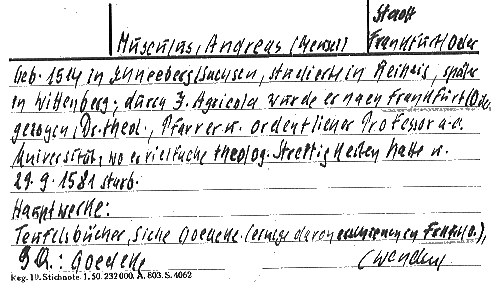 Stadt
Musculus, Andreas (Meusel) Frankfurt/Oder
Geb. 1514 in Schneeberg/Sachsen, studierte in Leipzig, später
in Wittenberg; durch J. Agricola wurde er nach Frankfurt/Oder
gezogen, Dr. theol., Pfarrer u. ordentlicher Professor a. d.
Universität, wo er vielfache theolog. Streitigkeiten hatte u.
29.9.1581 starb.
Hauptwerke:
Teufelsbücher, siehe Goedeke. (einige davon erschienen in Frankf. a. O.),
Q.: Goedeke
Reg. 19. Stichnote. 1. 50. 232000. A. 803. S. 4062